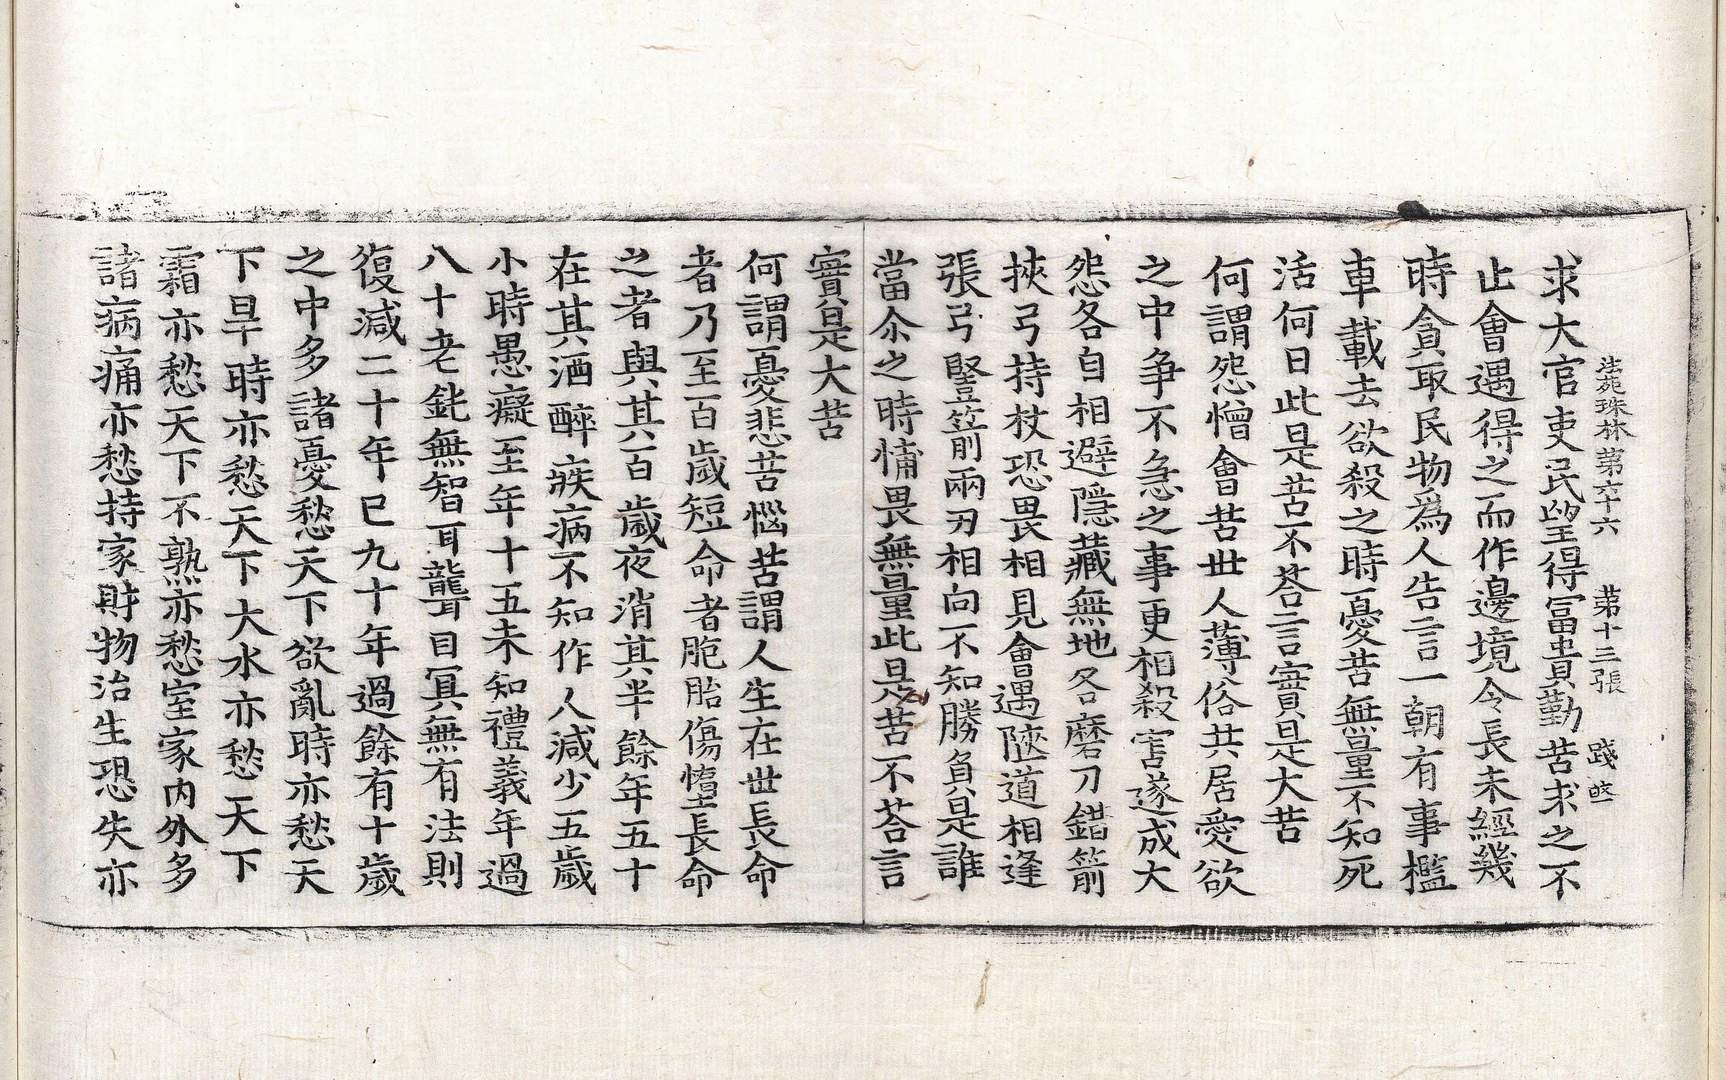 法苑珠林第六十六　第十三張　踐
求大官吏民望得富貴勤苦求之不
止會遇得之而作邊境令長未經幾
時貪取民物爲人告言一朝有事檻
車載去欲殺之時憂苦無量不知死
活何日此是苦不荅言實是大苦
何謂怨憎會苦世人薄俗共居愛欲
之中爭不急之事更相殺害遂成大
怨各自相避隱藏無地各磨刀錯箭
挾弓持杖恐畏相見會遇陜道相逢
張弓竪箭兩刃相向不知勝負是誰
當尒之時怖畏無量此是苦不荅言
實是大苦
何謂憂悲苦惱苦謂人生在世長命
者乃至百歲短命者胞胎傷墮長命
之者與其百歲夜消其半餘年五十
在其酒醉疾病不知作人減少五歲
小時愚癡至年十五未知禮義年過
八十老鈍無智耳聾目冥無有法則
復減二十年已九十年過餘有十歲
之中多諸憂愁天下欲亂時亦愁天
下旱時亦愁天下大水亦愁天下
霜亦愁天下不熟亦愁室家內外多
諸病痛亦愁持家財物治生恐失亦